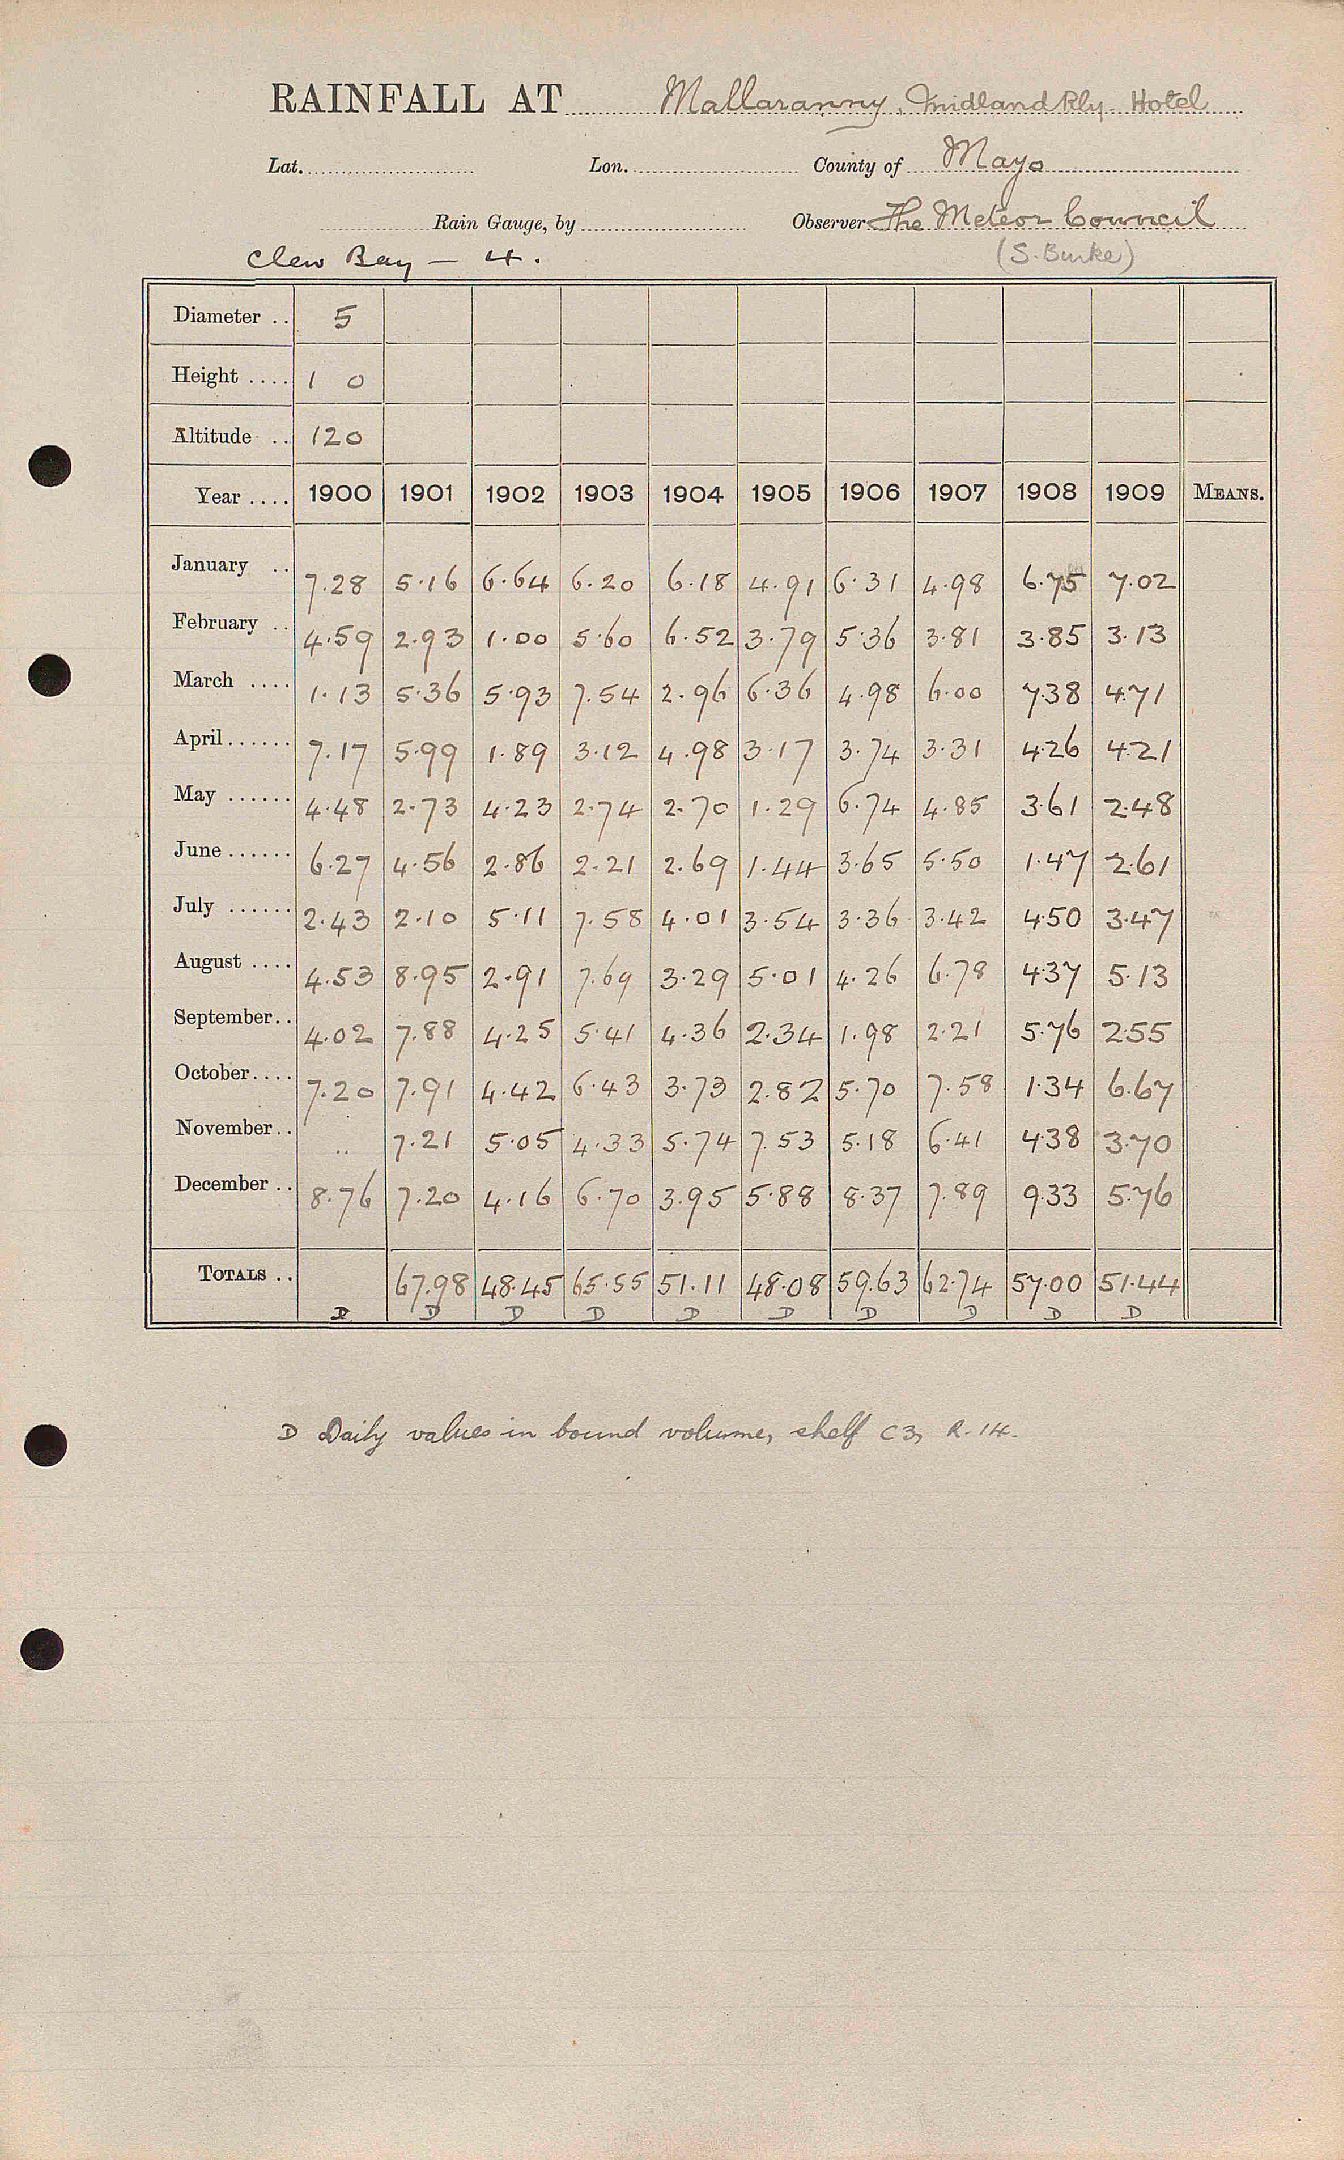 RAINFALL AT Mallaranny, Midland Rly. Hotel
Lat. Lon. County of Mayo
Rain Gauge, by Observer The Meteor Council
Clew Bay — 4. (S. Burke)
Diameter .. 5
Height .... 1 0
Altitude .. 120
Year .... 1900 1901 1902 1903 1904 1905 1906 1907 1908 1909 MEANS.
January .. 7.28 5.16 6.64 6.20 6.18 4.91 6.31 4.98 6.75 7.02
February .. 4.59 2.93 1.00 5.60 6.52 3.79 5.36 3.81 3.85 3.13
March .... 1.13 5.36 5.93 7.54 2.96 6.36 4.98 6.00 7.38 4.71
April...... 7.17 5.99 1.89 3.12 4.98 3.17 3.74 3.31 4.26 4.21
May ...... 4.48 2.73 4.23 2.74 2.70 1.29 6.74 4.85 3.61 2.48
June ...... 6.27 4.56 2.86 2.21 2.69 1.44 3.65 5.50 1.47 2.61
July ...... 2.43 2.10 5.11 7.58 4.01 3.54 3.36 3.42 4.50 3.47
August .... 4.53 8.95 2.91 7.69 3.29 5.01 4.26 6.78 4.37 5.13
September.. 4.02 7.88 4.25 5.41 4.36 2.34 1.98 2.21 5.76 2.55
October.... 7.20 7.91 4.42 6.43 3.73 2.82 5.70 7.58 1.34 6.67
November.. .. 7.21 5.05 4.33 5.74 7.53 5.18 6.41 4.38 3.70
December .. 8.76 7.20 4.16 6.70 3.95 5.88 8.37 7.89 9.33 5.76
TOTALS .. 67.98 48.45 65.55 51.11 48.08 59.63 62.74 57.00 51.44
D D D D D D D D D D
D Daily values in bound volume, shelf C3, R.14.